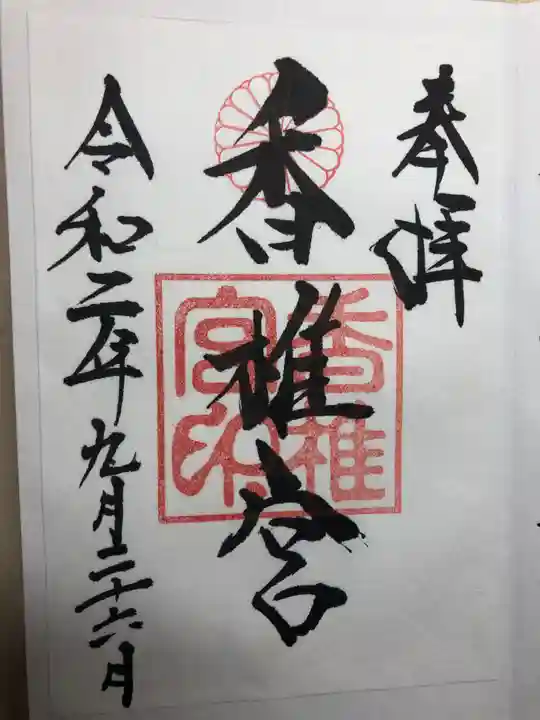 奉拝
香椎宮
令和二年九月二十六日
香椎
宮印